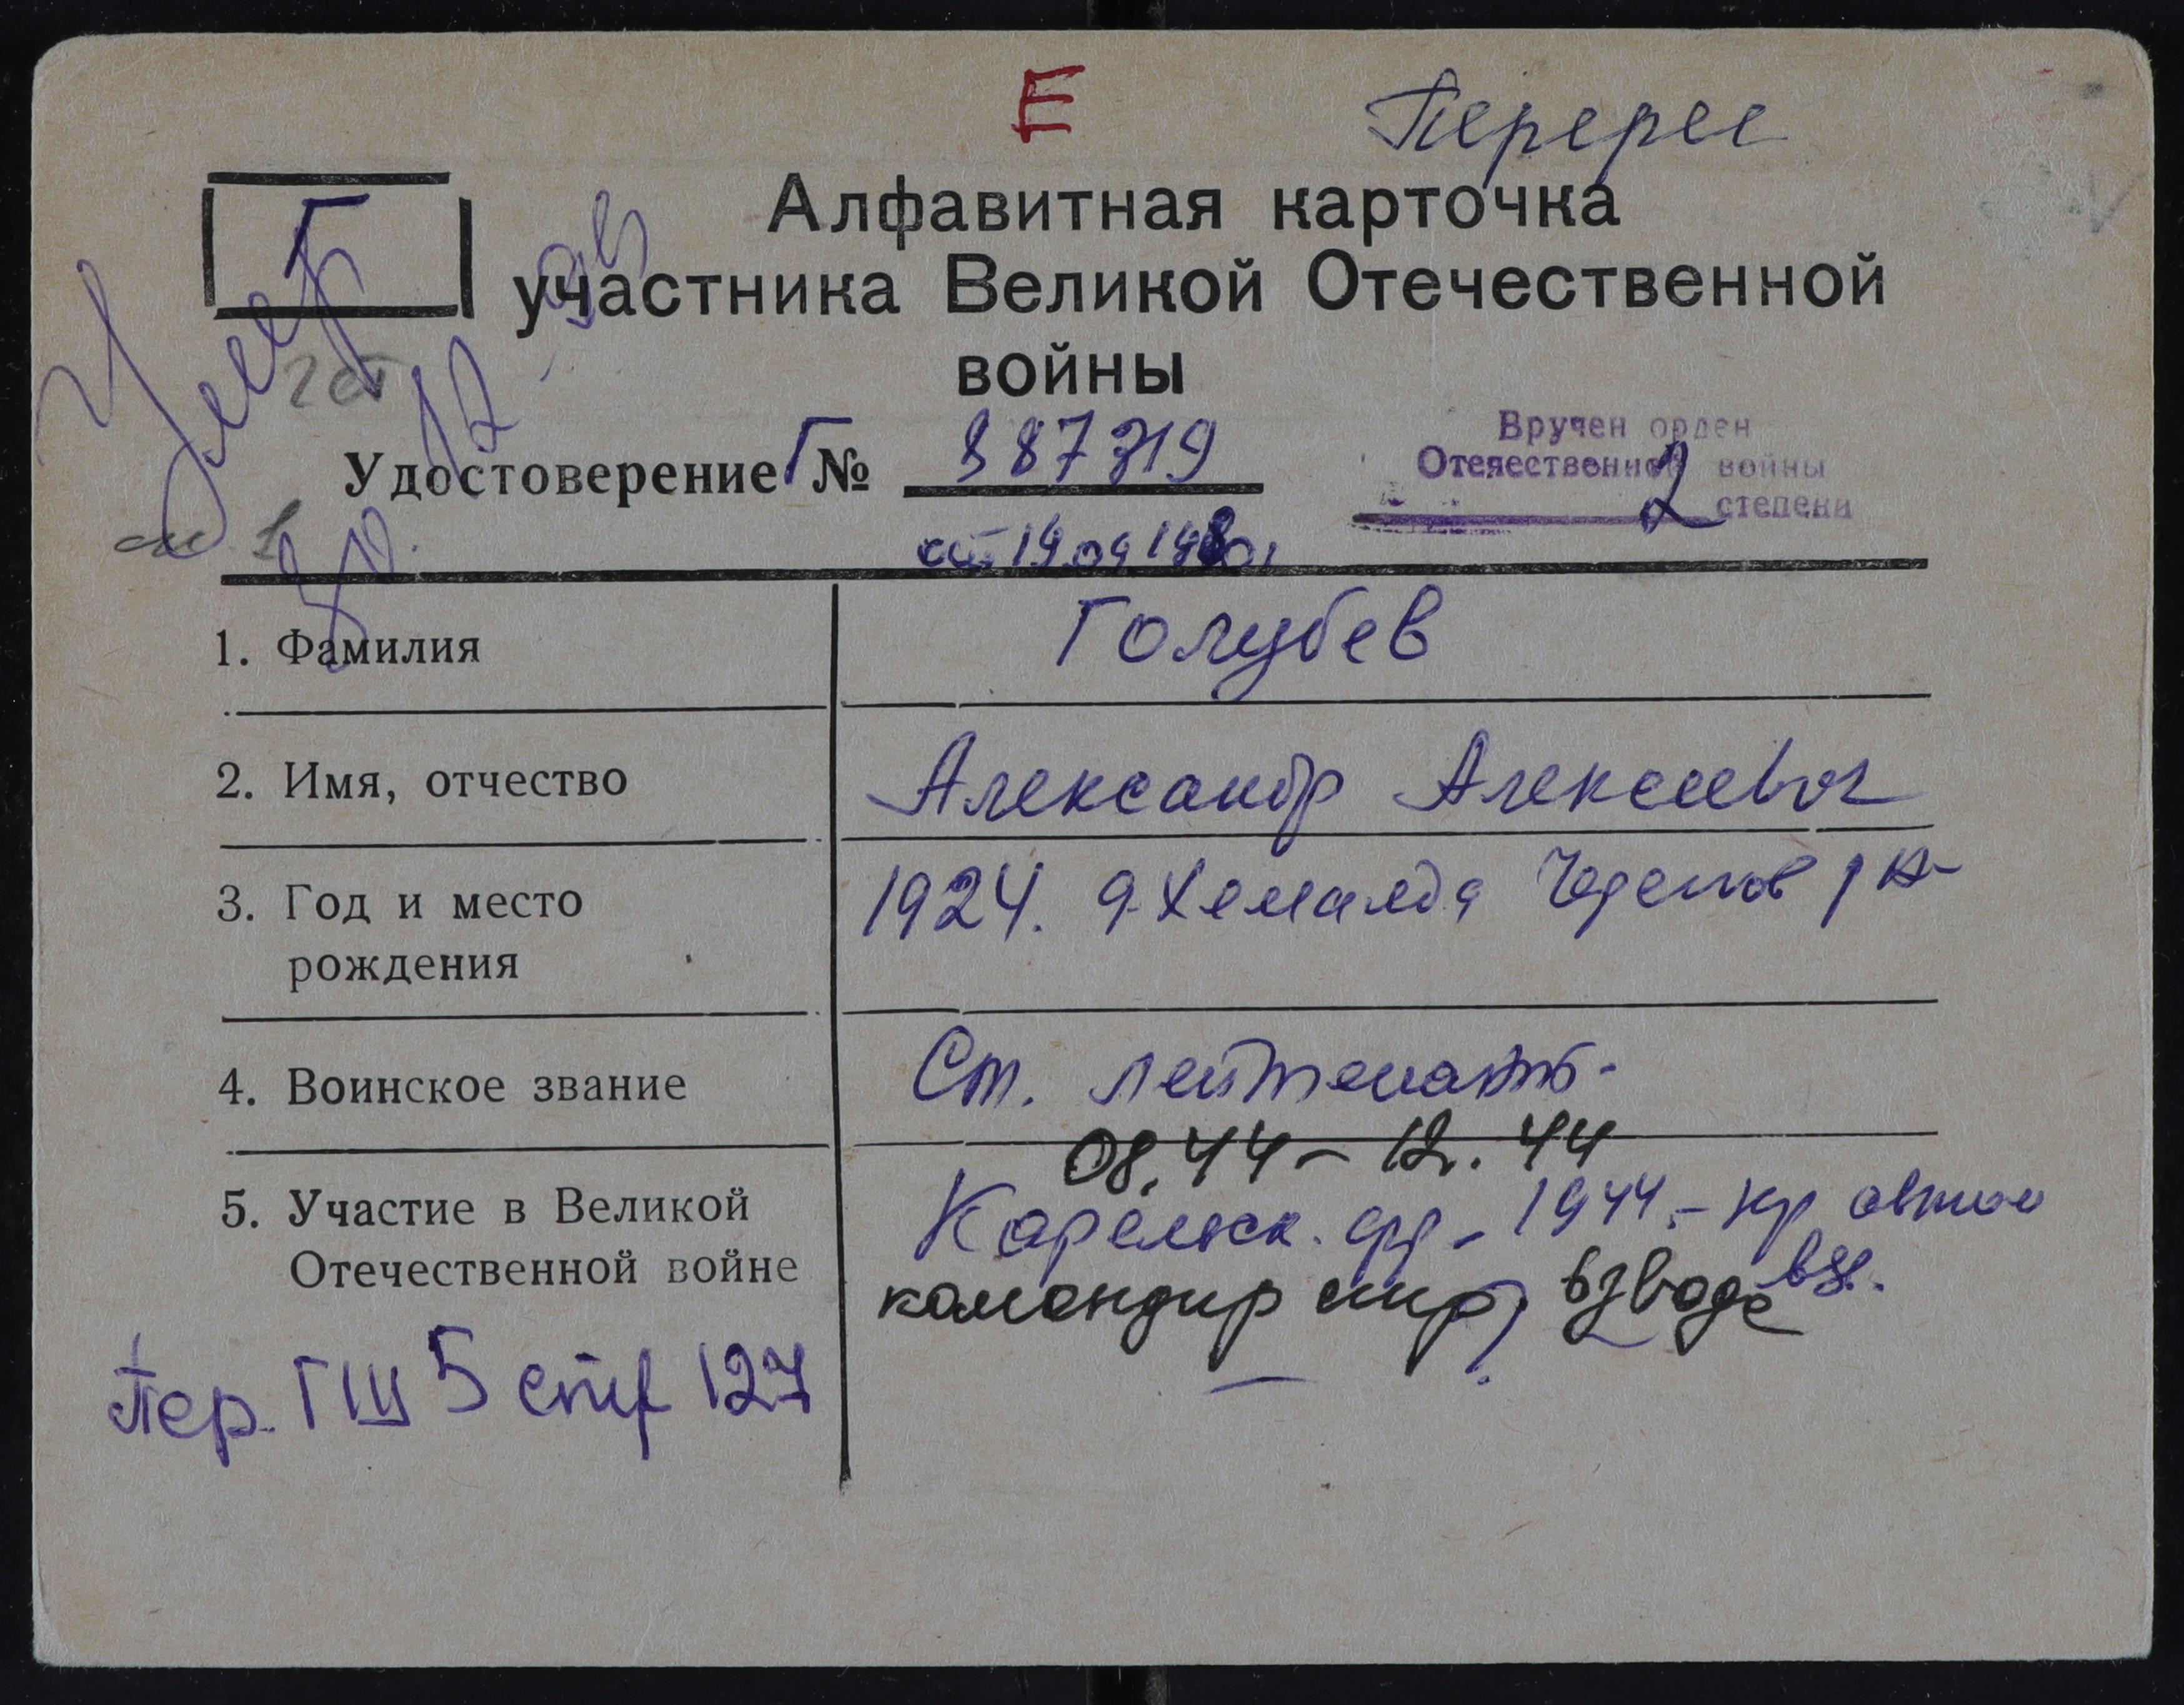 Е
Перерег
Г
Алфавитная карточка
участника Великой Отечественной
войны
Умер
Удостоверение Г № 887719
Вручен орден
Отечественной войны
2 степени
от 19.09 1980г
1. Фамилия Голубев
2. Имя, отчество Александр Алексеевич
3. Год и место рождения 1924. д
4. Воинское звание Ст. лейтенант.
08.44 – 12.44
5. Участие в Великой Отечественной войне Карельск. фр. 1944 –
командир стр. взвода вз.
Пер. ГШ 5 стр 127